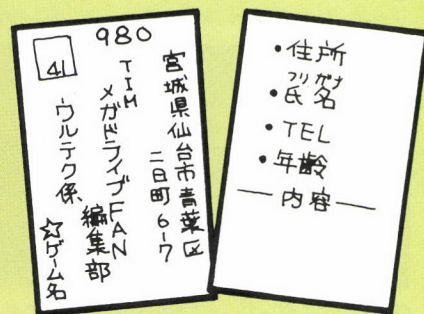 980
41
宮城県仙台市青葉区
二日町6-7
TIM
メガドライブFAN
編集部
ウルテク係
☆ゲーム名
・住所
フリガナ
・氏名
・TEL
・年齢
―内容―